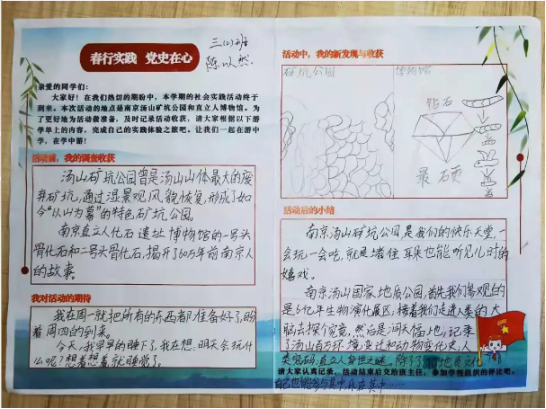 春行实践 党史在心
三(2)班
陈以然
亲爱的同学们：
大家好！在我们热切的期盼中，本学期的社会实践活动终于
到来。本次活动的地点是南京汤山矿坑公园和直立人博物馆。为
了更好地为活动做准备，及时记录活动收获，请大家根据以下游
学单上的内容，完成自己的实践体验之旅吧。让我们一起在游中
学，在学中游！
活动前，我的调查收获
汤山矿坑公园曾是汤山山体最大的废
弃矿坑，通过湿景观风貌恢复，形成了如
今"以山为幕"的特色矿坑公园。
南京直立人化石遗址博物馆的一号头
骨化石和二号头骨化石，揭开了60万年前南京人
的故事
我对活动的期待
我在周一就把所有的东西都准备好了，盼
着周四的到来。
今天，我早早的睡下了，我在想，明天会玩什
么呢？想着想着就睡觉了。
活动中，我的新发现与收获
矿坑公园
博物馆
钻石
最硬
活动后的小结
南京汤山矿坑公园是我们的快乐天堂，一
会玩一会吃，就是堵住耳朵也能听见儿时的
嬉戏。
南京汤山国家地质公园，首先我们参观的
是6亿年生物演化展区，接着我们走进人类的大
脑去探究竟，然后是洞天福地，记录
了汤山百万环境变迁和动物变化史，人
类密码，直立人复世之谜，
请大家认真记录，活动结束后交给班主任，参加学校组织的评比吧。